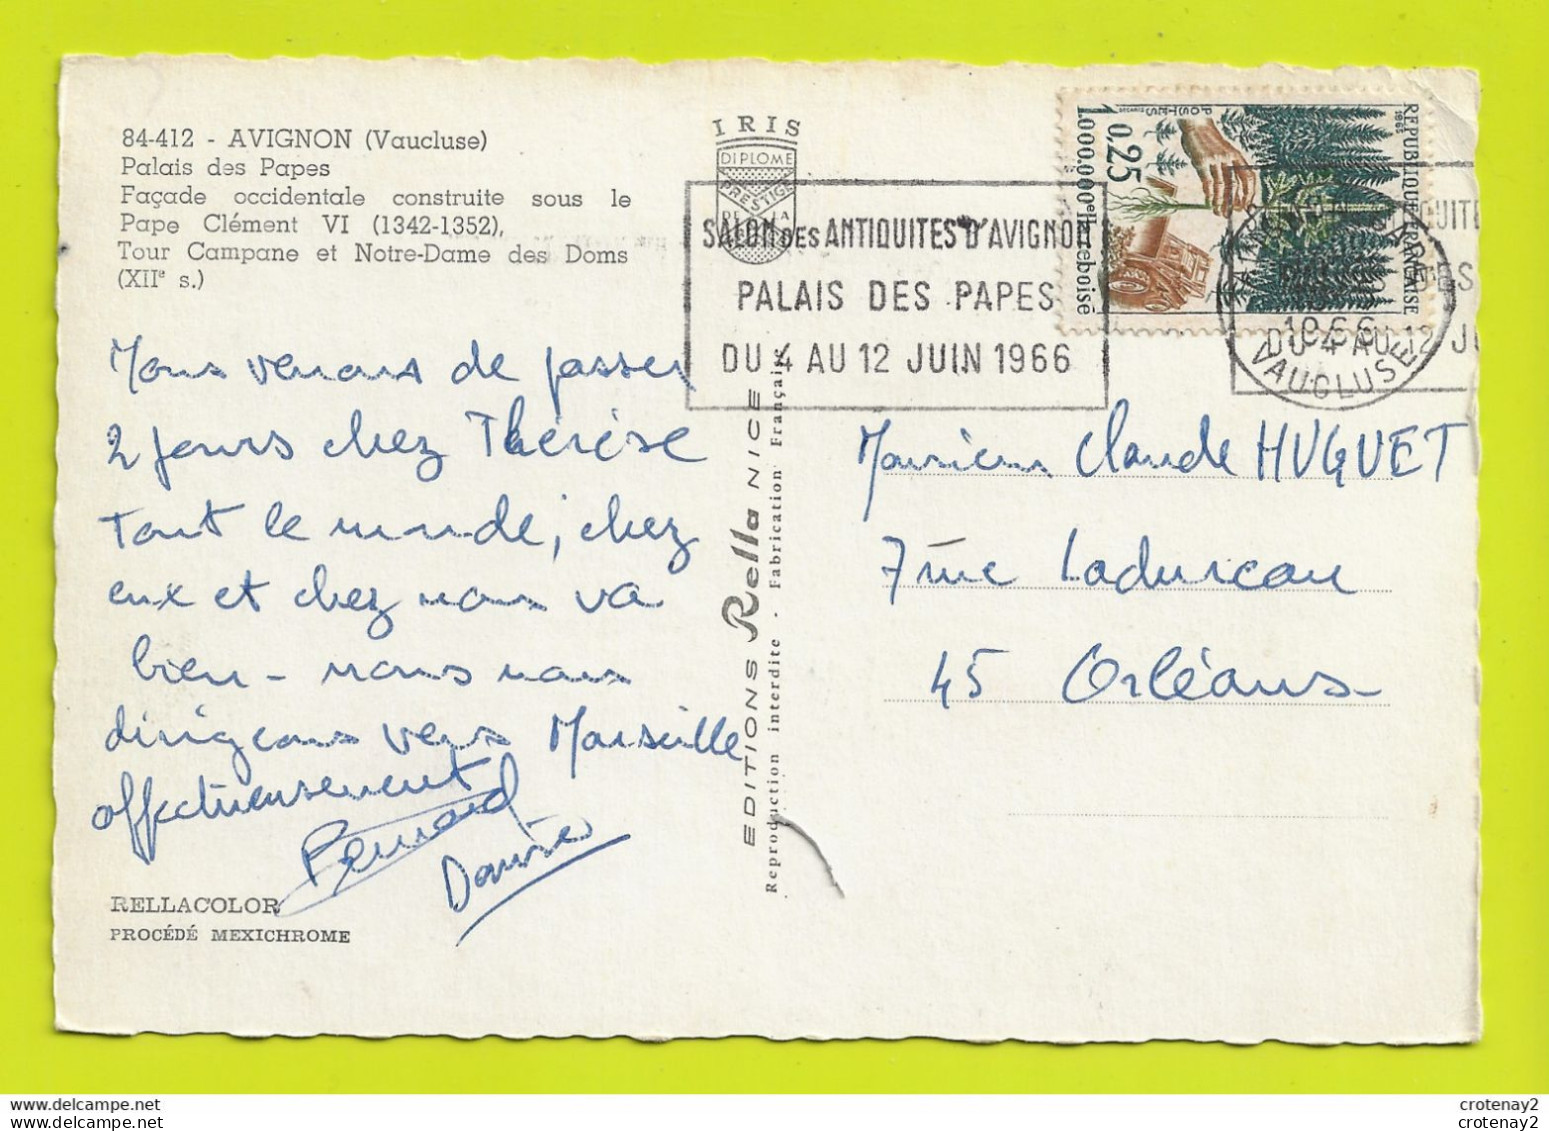 84-412 - AVIGNON (Vaucluse)
Palais des Papes
Façade occidentale construite sous le
Pape Clément VI (1342-1352),
Tour Campane et Notre-Dame des Doms
(XIIe s.)
Nous venons de passer
2 jours chez Thérèse
tout le monde, chez
eux et chez nous va
bien - nous nous
dirigeons vers Marseille
affectueusement
Bernard
Danièle
RELLACOLOR
PROCÉDÉ MEXICHROME
IRIS
DIPLOME
PRESTIGE
DE LA
EDITIONS Rella NICE
Reproduction interdite - Fabrication Française
SALON DES ANTIQUITES D'AVIGNON
PALAIS DES PAPES
DU 4 AU 12 JUIN 1966
REPUBLIQUE FRANÇAISE
1965
POSTES
0,25
1.000.000e ha reboisé
GARE
1966
VAUCLUSE
DU 4 AU 12 JU
Monsieur Claude HUGUET
7 rue Ladureau
45 Orléans
crotenay2
crotenay2